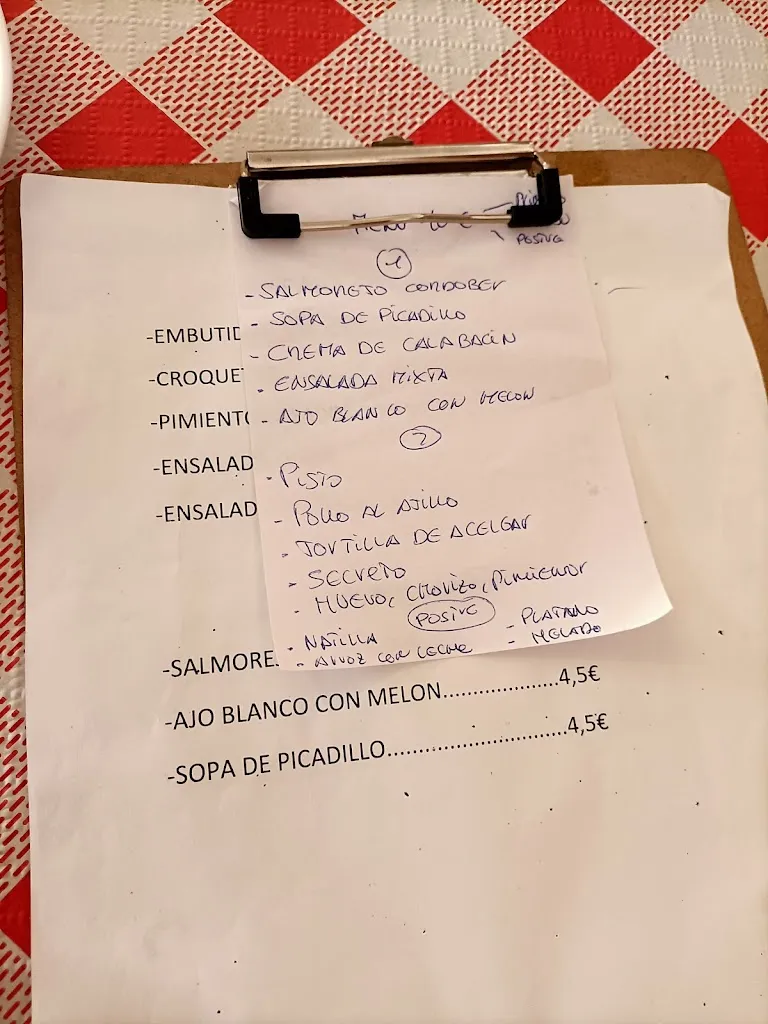 MENU 10 €
POSTRE
1
-SALMOREJO CORDOBES
- SOPA DE PICADILLO
- CREMA DE CALABACIN
- ENSALADA MIXTA
- AJO BLANCO CON MELON
2
- PISTO
- POLLO AL AJILLO
- TORTILLA DE ACELGAS
- SECRETO
- HUEVO, CHORIZO, PIMIENTOS
POSTRE
- NATILLA - PLATANO
- ARROZ CON LECHE - HELADO
-EMBUTID
-CROQUET
-PIMIENTO
-ENSALAD
-ENSALAD
-SALMORE
-AJO BLANCO CON MELON......................4,5€
-SOPA DE PICADILLO..................................4,5€